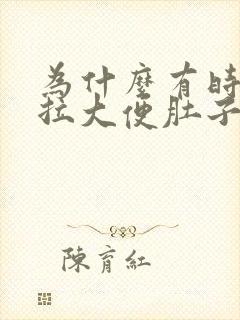 為什麼有時
拉大便肚子
陳育紅